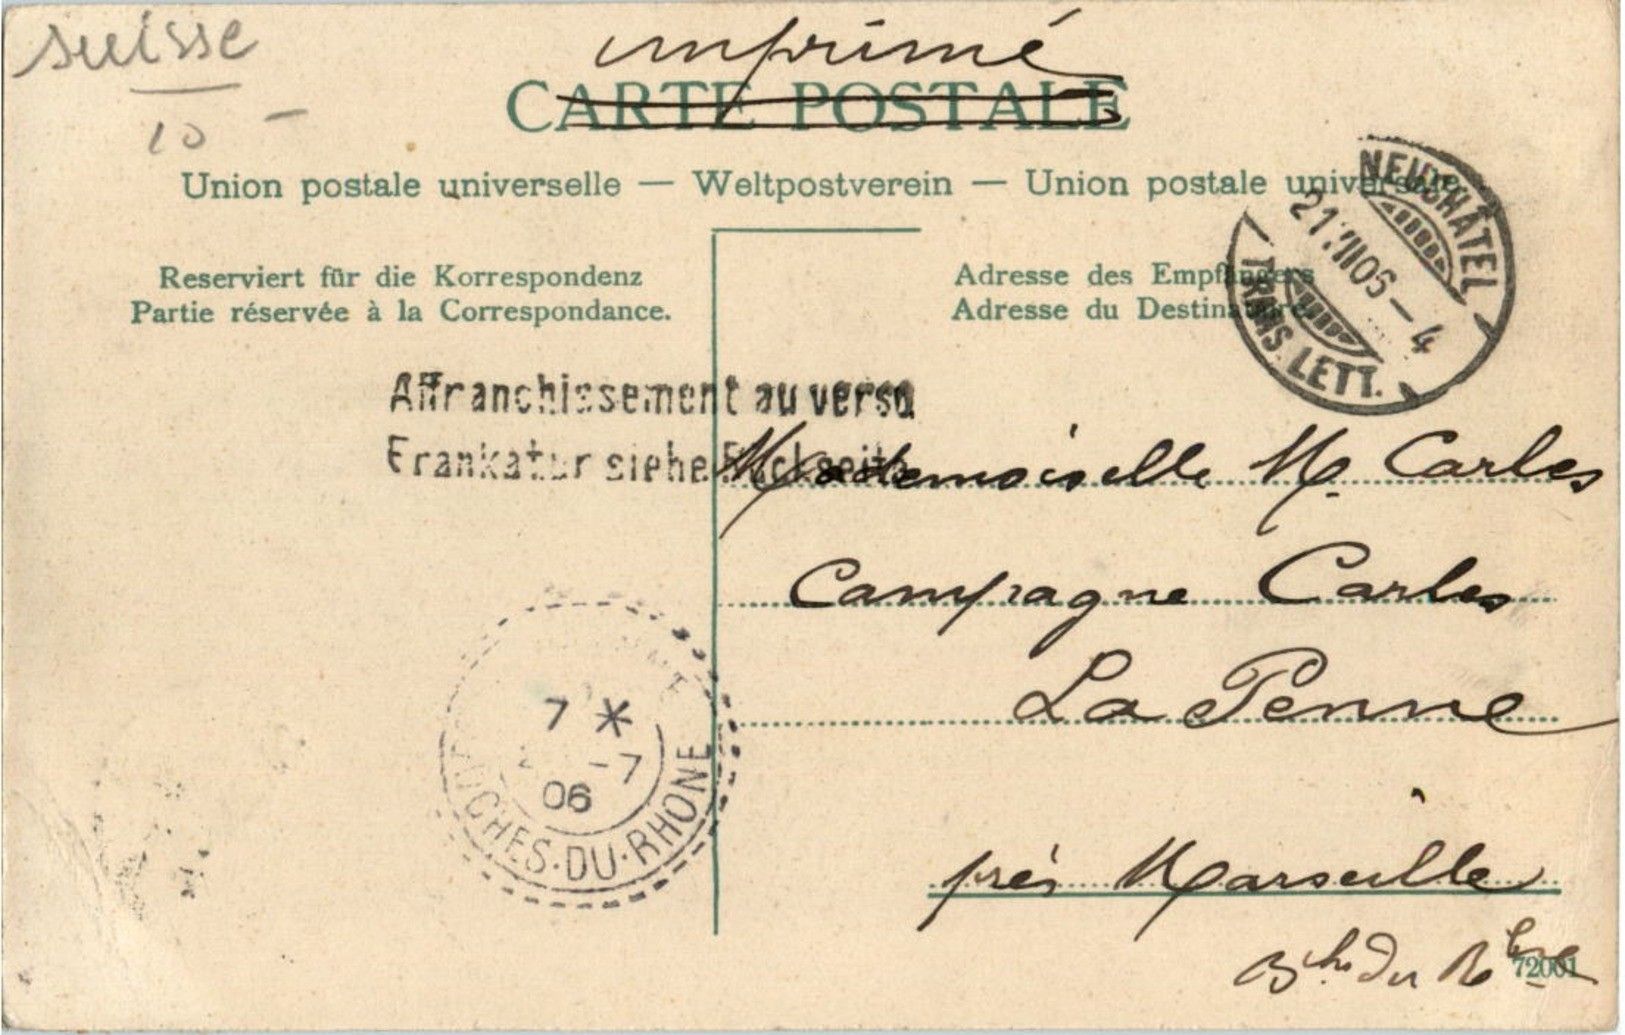 suisse
10 —
imprimé
CARTE POSTALE
Union postale universelle — Weltpostverein — Union postale universale
NEUCHÂTEL
21.VII.06 — 4
TRANS. LETT.
Reserviert für die Korrespondenz
Partie réservée à la Correspondance.
Adresse des Empfängers
Adresse du Destinataire
Affranchissement au verso
Frankatur siehe Rückseite
Mademoiselle M. Carles
Campagne Carles
La Penne
près Marseille
Bches du Rhne
7 *
-7
06
BOUCHES-DU-RHONE
72001